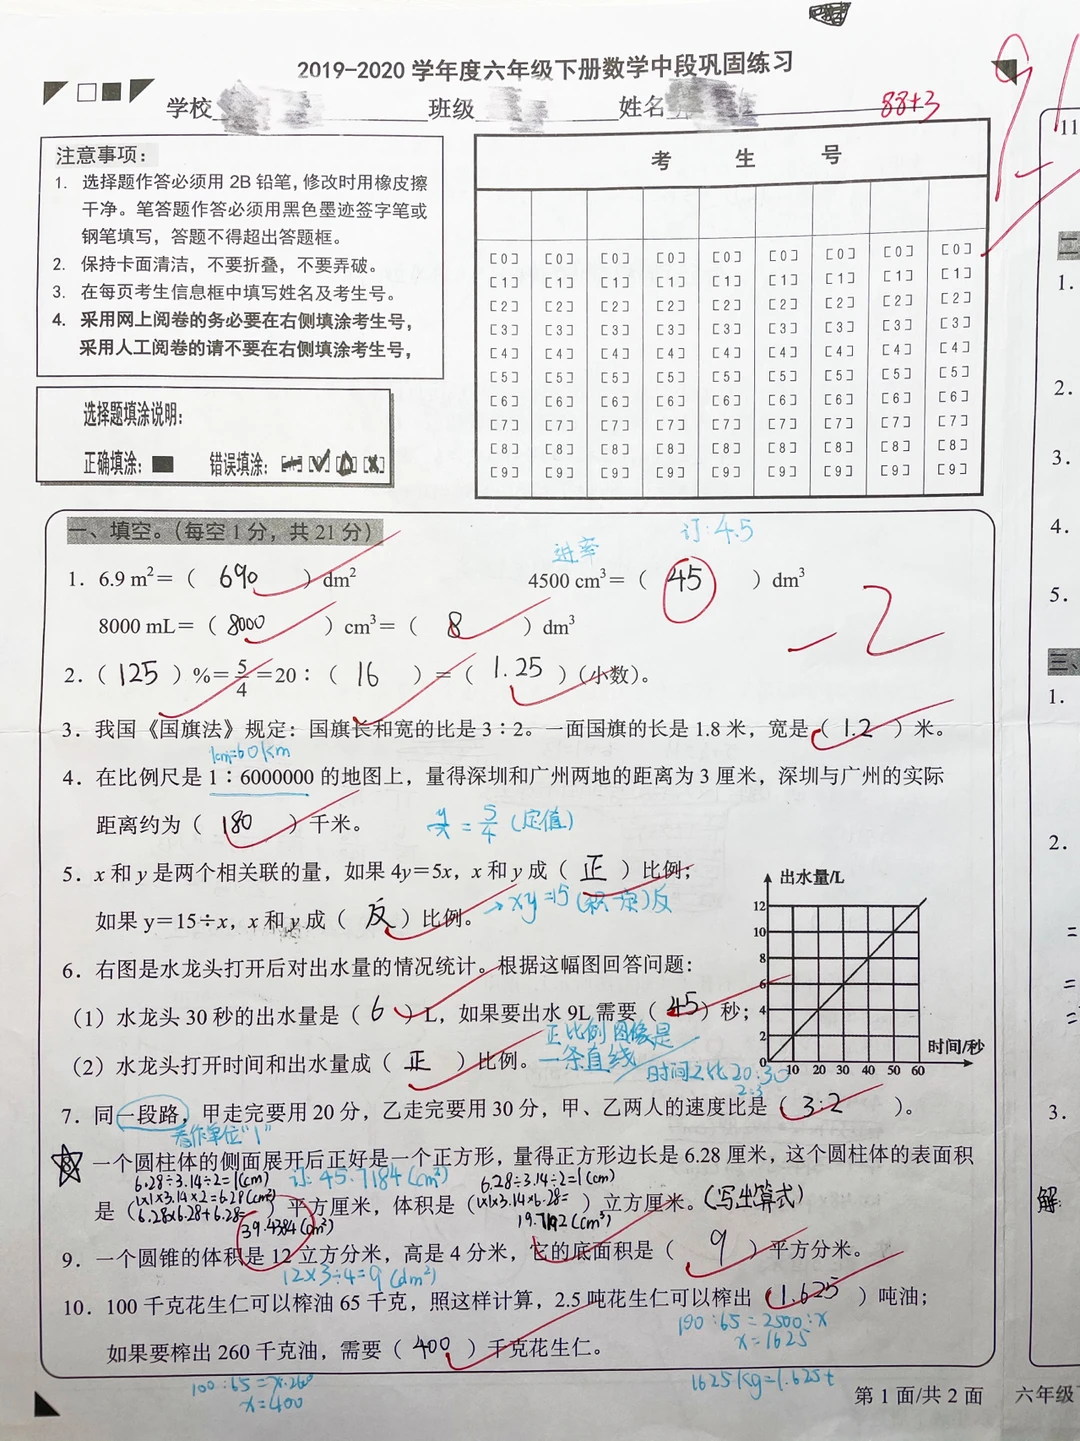 2019-2020 学年度六年级下册数学中段巩固练习
学校 班级 姓名 88+3
91
注意事项：
1. 选择题作答必须用 2B 铅笔，修改时用橡皮擦
干净。笔答题作答必须用黑色墨迹签字笔或
钢笔填写，答题不得超出答题框。
2. 保持卡面清洁，不要折叠，不要弄破。
3. 在每页考生信息框中填写姓名及考生号。
4. 采用网上阅卷的务必要在右侧填涂考生号，
采用人工阅卷的请不要在右侧填涂考生号，
选择题填涂说明：
正确填涂： 错误填涂：
考 生 号
[0] [0] [0] [0] [0] [0] [0] [0] [0]
[1] [1] [1] [1] [1] [1] [1] [1] [1]
[2] [2] [2] [2] [2] [2] [2] [2] [2]
[3] [3] [3] [3] [3] [3] [3] [3] [3]
[4] [4] [4] [4] [4] [4] [4] [4] [4]
[5] [5] [5] [5] [5] [5] [5] [5] [5]
[6] [6] [6] [6] [6] [6] [6] [6] [6]
[7] [7] [7] [7] [7] [7] [7] [7] [7]
[8] [8] [8] [8] [8] [8] [8] [8] [8]
[9] [9] [9] [9] [9] [9] [9] [9] [9]
一、填空。（每空 1 分，共 21 分）
订:4.5
进率
1. 6.9 m²=（ 690 ）dm² 4500 cm³=（ 45 ）dm³
8000 mL=（ 8000 ）cm³=（ 8 ）dm³
-2
2.（ 125 ）%=5/4=20：（ 16 ）=（ 1.25 ）（小数）。
3. 我国《国旗法》规定：国旗长和宽的比是 3：2。一面国旗的长是 1.8 米，宽是（ 1.2 ）米。
1cm=60km
4. 在比例尺是 1：6000000 的地图上，量得深圳和广州两地的距离为 3 厘米，深圳与广州的实际
距离约为（ 180 ）千米。
y/x=5/4(定值)
5. x 和 y 是两个相关联的量，如果 4y=5x，x 和 y 成（ 正 ）比例；
如果 y=15÷x，x 和 y 成（ 反 ）比例。
→xy=15(积一定)反
6. 右图是水龙头打开后对出水量的情况统计。根据这幅图回答问题：
（1）水龙头 30 秒的出水量是（ 6 ）L，如果要出水 9L 需要（ 45 ）秒；
（2）水龙头打开时间和出水量成（ 正 ）比例。
正比例图像是
一条直线
出水量/L
12
10
8
6
4
2
0 10 20 30 40 50 60
时间/秒
时间之比20:30
2:3
7. 同一段路，甲走完要用 20 分，乙走完要用 30 分，甲、乙两人的速度比是（ 3:2 ）。
看作单位"1"
8 一个圆柱体的侧面展开后正好是一个正方形，量得正方形边长是 6.28 厘米，这个圆柱体的表面积
6.28÷3.14÷2=1(cm)
1×1×3.14×2=6.28(cm²)
6.28×6.28+6.28=
39.4384(cm²)
订:45.7184(cm²)
6.28÷3.14÷2=1(cm)
1×1×3.14×6.28=
19.7192(cm³)
是（ ）平方厘米，体积是（ ）立方厘米。（写出算式）
9. 一个圆锥的体积是 12 立方分米，高是 4 分米，它的底面积是（ 9 ）平方分米。
12×3÷4=9(dm²)
10. 100 千克花生仁可以榨油 65 千克，照这样计算，2.5 吨花生仁可以榨出（ 1.625 ）吨油；
100:65=2500:x
x=1625
如果要榨出 260 千克油，需要（ 400 ）千克花生仁。
100:65=x:260
x=400
1625kg=1.625t
第 1 面/共 2 面
六年级
11
二
1.
2.
3.
4.
5.
三、
1.
2.
=
=
=
3.
解: